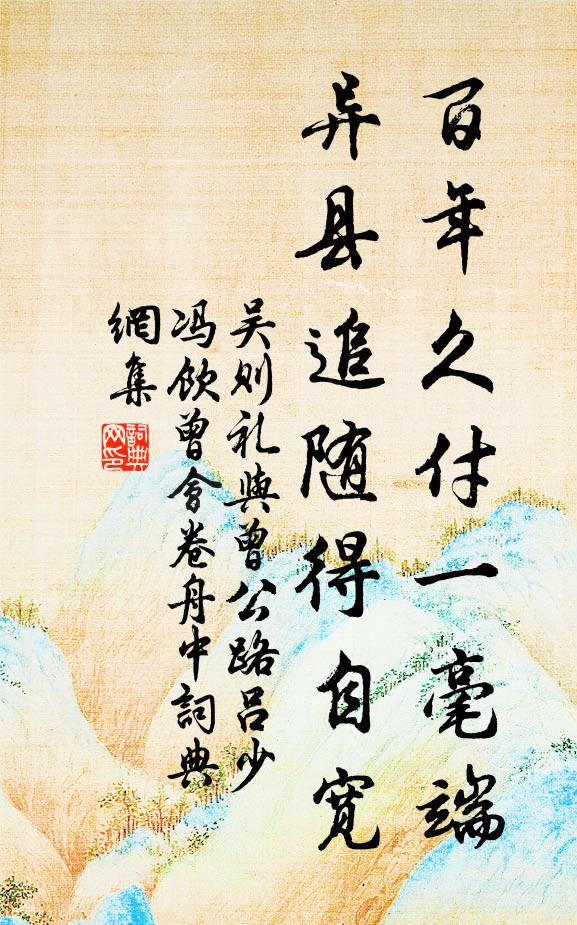 百年久付一毫端
异县追随得自宽
吴则礼與曾公路吕少
冯饮曾會卷舟中詞典
網集
詞典網印